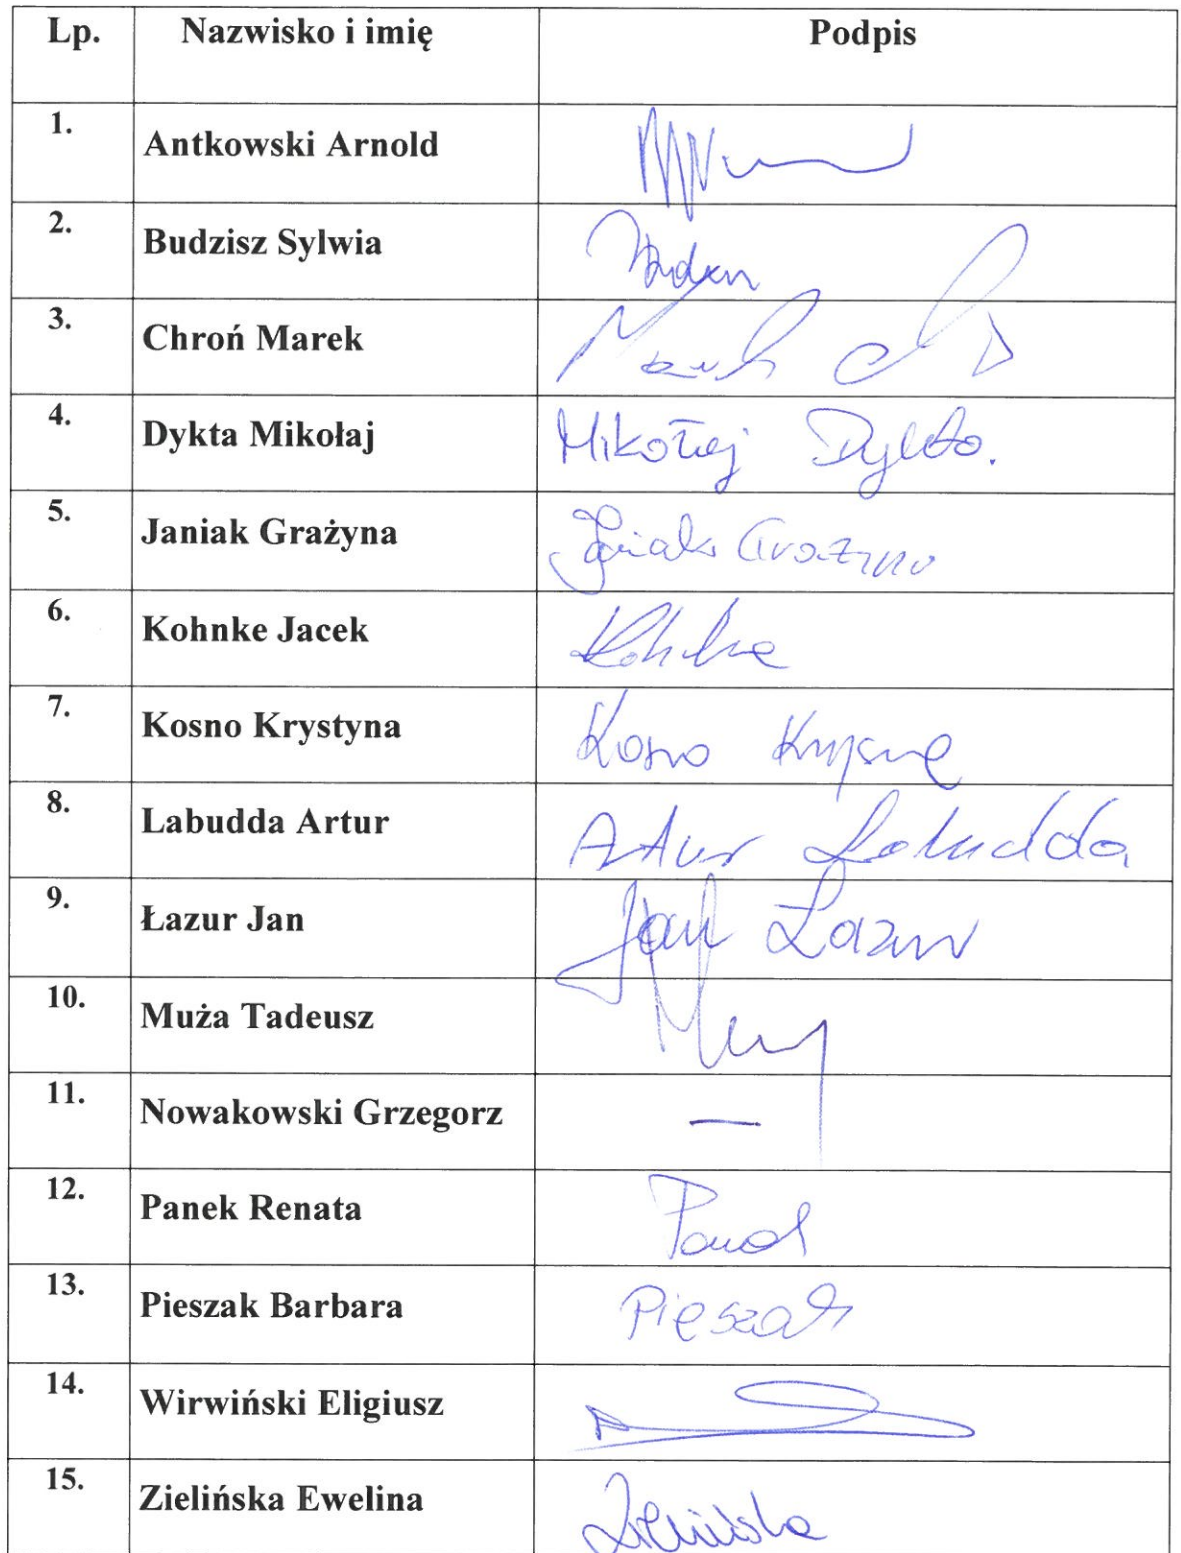 Lp. Nazwisko i imię Podpis
1. Antkowski Arnold
2. Budzisz Sylwia
3. Chroń Marek Marek
4. Dykta Mikołaj Mikołaj Dykta.
5. Janiak Grażyna Janiak Grażyna
6. Kohnke Jacek Kohnke
7. Kosno Krystyna Kosno
8. Labudda Artur Artur Labudda
9. Łazur Jan Jan Łazur
10. Muża Tadeusz
11. Nowakowski Grzegorz —
12. Panek Renata Panek
13. Pieszak Barbara Pieszak
14. Wirwiński Eligiusz
15. Zielińska Ewelina Zielińska